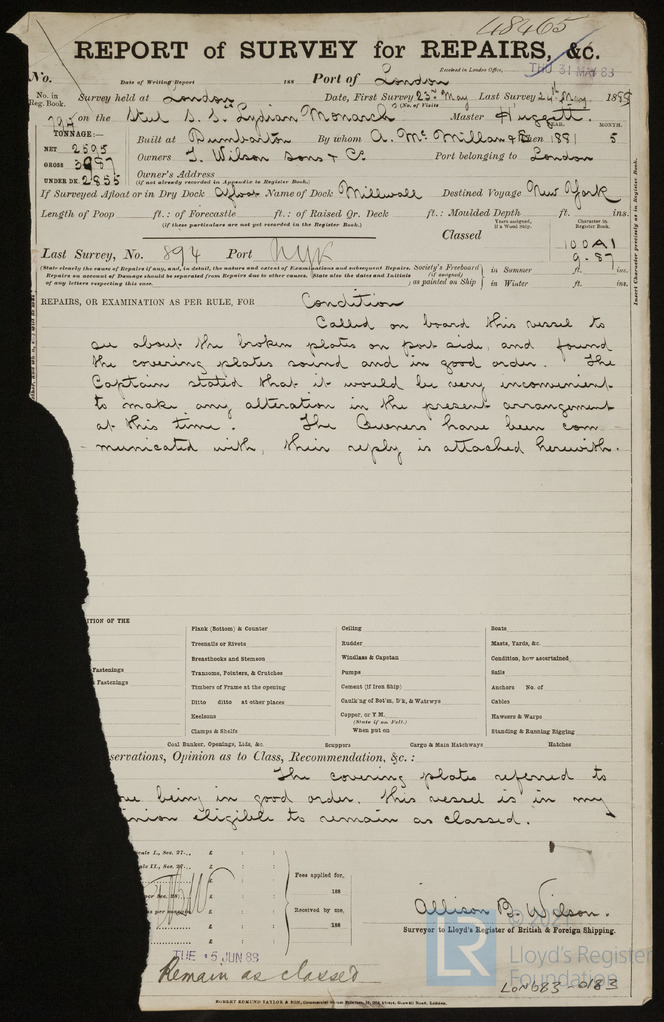 48465
REPORT of SURVEY for REPAIRS, &c.
THU 31 MAY 88
No. Date of Writing Report 188 Port of London Received in London Office,
No. in Reg. Book. Survey held at London Date, First Survey 23rd May Last Survey 24th May, 188
(No. of Visits
on the Steel S. S. "Lydian Monarch Master Huggett.
YEAR. MONTH.
TONNAGE:—
Built at Dumbarton By whom A. Mc Millan & When 1881 5
NET 2595
GROSS 3987
UNDER DK. 2855
Owners T. Wilson Sons & Co Port belonging to London
Owner's Address
(if not already recorded in Appendix to Register Book.)
If Surveyed Afloat or in Dry Dock Afloat Name of Dock Millwall Destined Voyage New York
Length of Poop ft.: of Forecastle ft.: of Raised Qr. Deck ft.: Moulded Depth ft. ins.
(if these particulars are not yet recorded in the Register Book.)
Years assigned, if a Wood Ship. Character in Register Book.
Classed 100A1
9.87
Last Survey, No. 894 Port NYK
(State clearly the cause of Repairs if any, and, in detail, the nature and extent of Examinations and subsequent Repairs.
Repairs on account of Damage should be separated from Repairs due to other causes. State also the dates and Initials
of any letters respecting this case.
Society's Freeboard (if assigned) as painted on Ship
in Summer ft. ins.
in Winter ft. ins.
Insert Character precisely as in Register Book.
REPAIRS, OR EXAMINATION AS PER RULE, FOR Condition
Called on board this vessel to
see about the broken plates on port side, and found
the covering plates sound and in good order. The
Captain stated that it would be very inconvenient
to make any alteration in the present arrangement
at this time. The Owners have been com
municated with, their reply is attached herewith.
ITION OF THE
Fastenings
Fastenings
Plank (Bottom) & Counter
Treenails or Rivets
Breasthooks and Stemson
Transoms, Pointers, & Crutches
Timbers of Frame at the opening
Ditto ditto at other places
Keelsons
Clamps & Shelfs
Ceiling
Rudder
Windlass & Capstan
Pumps
Cement (if Iron Ship)
Caulk'ng of Bot'm, D'k, & Watrwys
Copper, or Y.M.
(State if on Felt.)
When put on
Boats
Masts, Yards, &c.
Condition, how ascertained
Sails
Anchors No. of
Cables
Hawsers & Warps
Standing & Running Rigging
Coal Bunker, Openings, Lids, &c. Scuppers Cargo & Main Hatchways Hatches
servations, Opinion as to Class, Recommendation, &c. :
The covering plates referred to
being in good order. this vessel is in my
nion eligible to remain as classed.
cale I., Sec. 27.., £ : :
£ : :
£ : :
£ : :
£ : :
Fees applied for,
188
Received by me,
188
Allison B. Wilson.
Surveyor to Lloyd's Register of British & Foreign Shipping.
TUE 5 JUN 88
Remain as classed
© 2021
LR
Lloyd's Register
Foundation
LON683-0183
ROBERT EDMUND TAYLOR & SON,